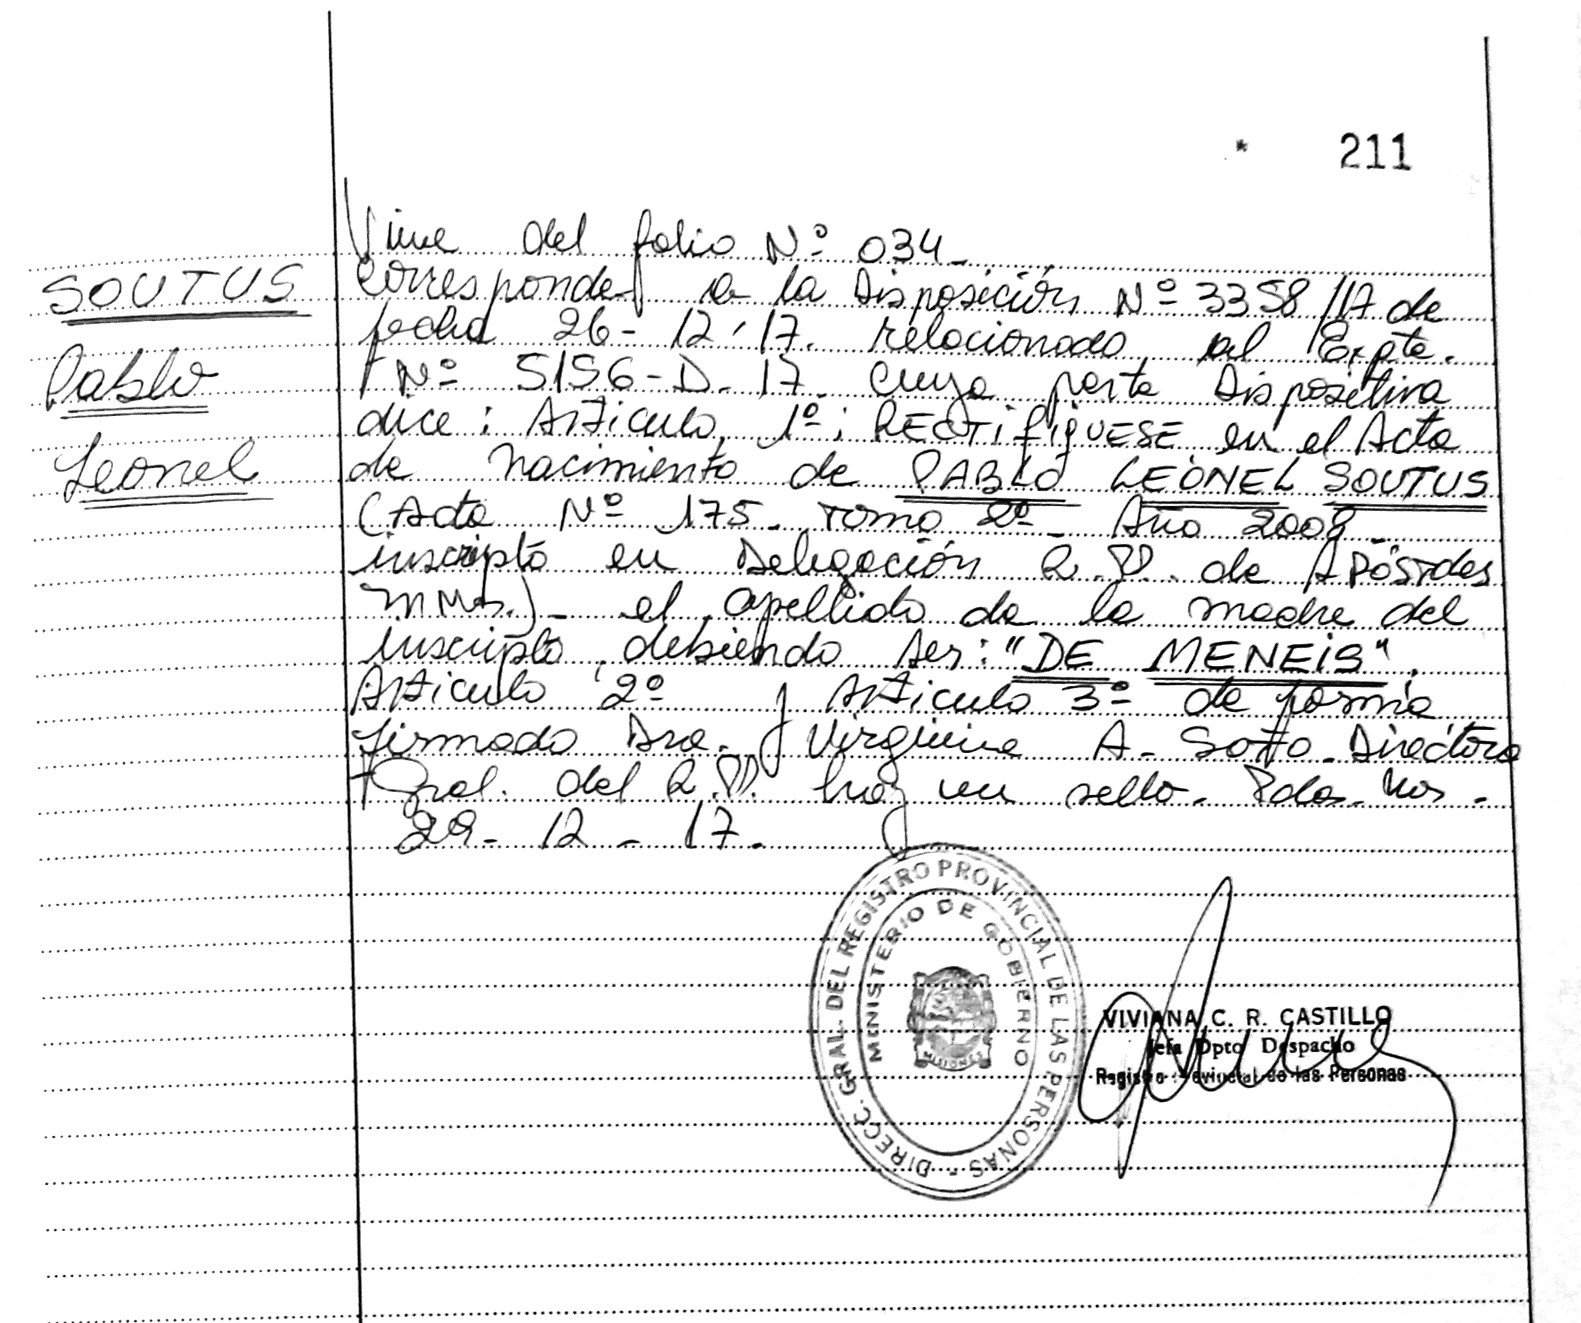 * 211
Viene del folio Nº 034-
SOUTUS
Pablo
Leonel
Corresponde a la Disposición Nº 3358/17 de
fecha 26-12-17. relacionado al Expte.
Nº 5156-D-17 cuya parte Dispositiva
dice: Articulo 1º: RECTIFIQUESE en el Acta
de nacimiento de PABLO LEONEL SOUTUS
(Acta Nº 175- Tomo 2º- Año 2008-
inscripto en Delegación R.P. de Apóstoles
Mnes.)- el apellido de la madre del
inscripto, debiendo ser: "DE MENEIS".
Articulo 2º y Articulo 3º de forma
firmado Dra. Virginia A. Sotto. Directora
Gral. del R.P. hay un sello. Pdas. Mns.
29-12-17.
DIRECC. GRAL. DEL REGISTRO PROVINCIAL DE LAS PERSONAS -
MINISTERIO DE GOBIERNO
MISIONES
VIVIANA C. R. CASTILLO
Jefa Dpto Despacho
Registro Provincial de las Personas